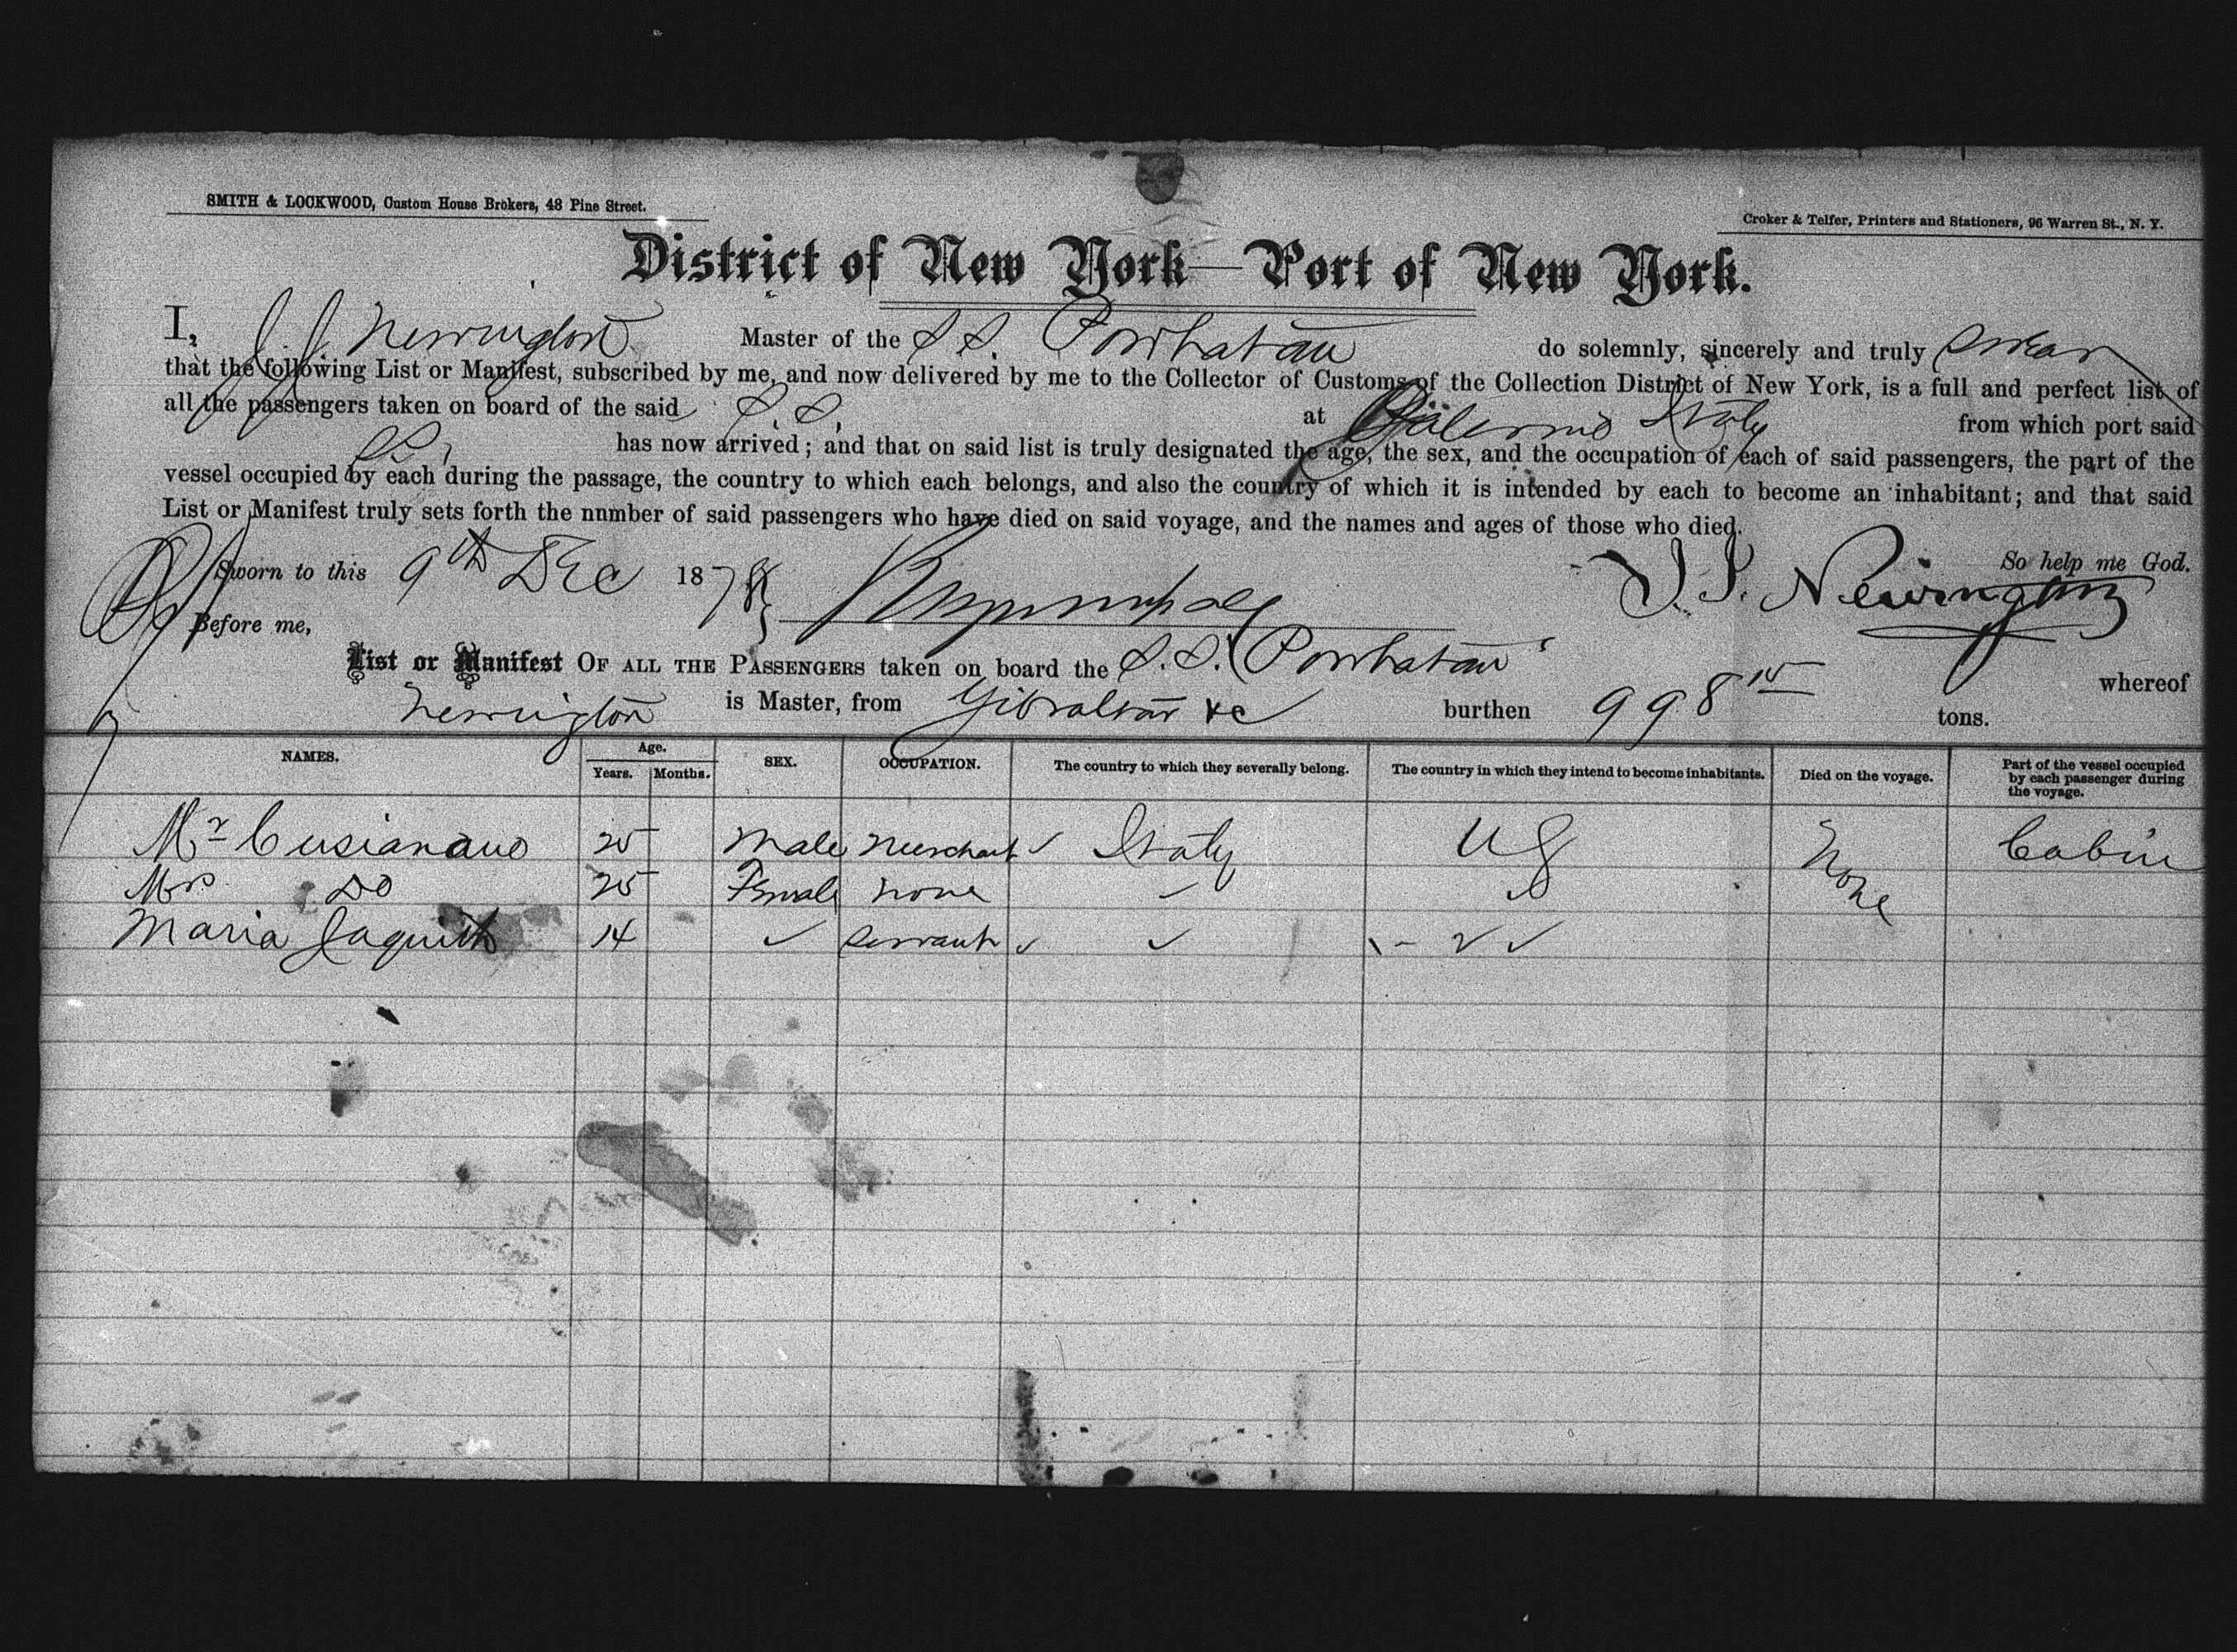 SMITH & LOCKWOOD, Custom House Brokers, 48 Pine Street.
Croker & Telfer, Printers and Stationers, 96 Warren St., N. Y.
District of New York—Port of New York.
I, J. J. Newington Master of the S S. Powhatan do solemnly, sincerely and truly swear
that the following List or Manifest, subscribed by me, and now delivered by me to the Collector of Customs of the Collection District of New York, is a full and perfect list of
all the passengers taken on board of the said S. S. at Palermo Italy from which port said
SS. has now arrived; and that on said list is truly designated the age, the sex, and the occupation of each of said passengers, the part of the
vessel occupied by each during the passage, the country to which each belongs, and also the country of which it is intended by each to become an inhabitant; and that said
List or Manifest truly sets forth the nnmber of said passengers who have died on said voyage, and the names and ages of those who died.
So help me God.
Sworn to this 9th Dec 1878 J. J. Newington
Before me,
List or Manifest OF ALL THE PASSENGERS taken on board the S. S. Powhatan whereof
Newington is Master, from Gibraltar &c burthen 998 tons.
NAMES. Age. Years. Months. SEX. OCCUPATION. The country to which they severally belong. The country in which they intend to become inhabitants. Died on the voyage. Part of the vessel occupied by each passenger during the voyage.
Mr 25 Male Merchant Italy US None Cabin
Mrs Do 25 Female None
Maria 14 Servant